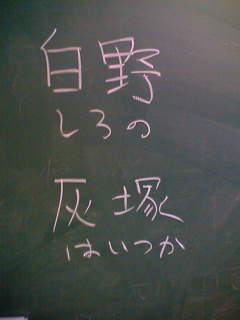 白野
しろの
灰塚
はいつか